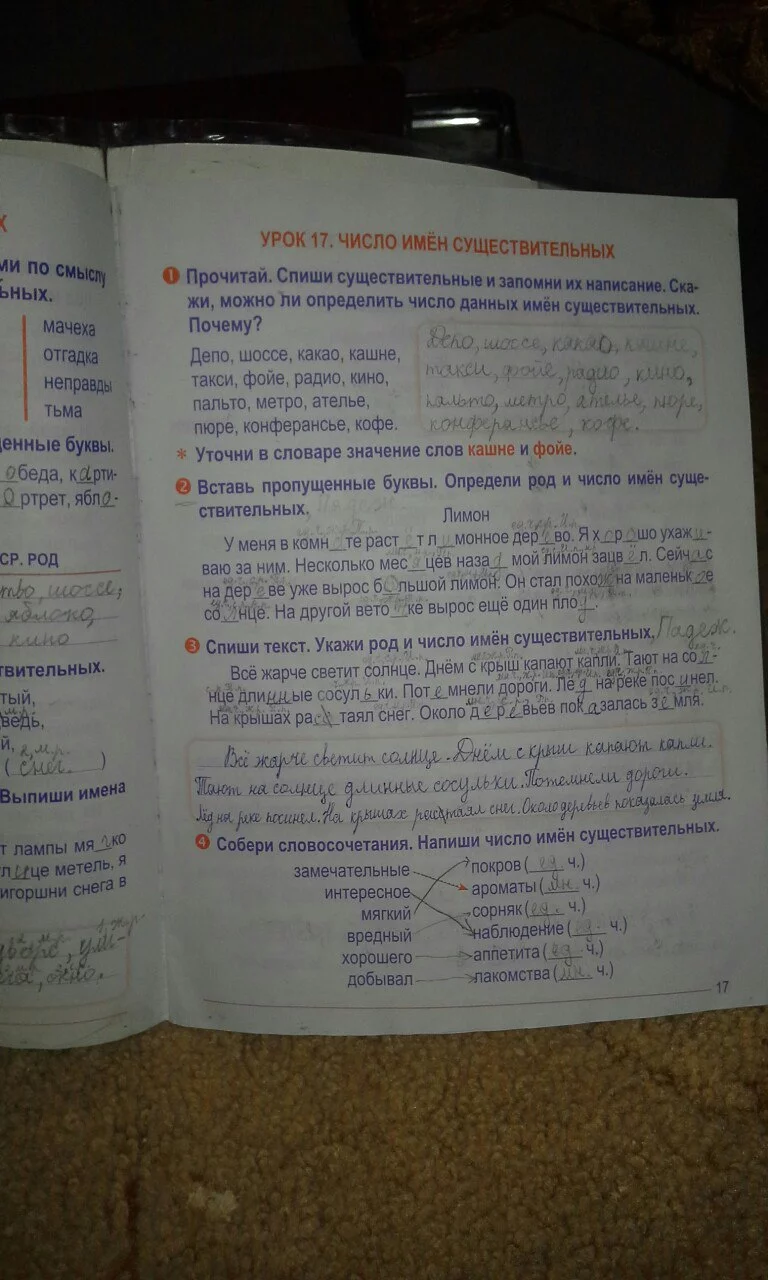 Х
ми по смыслу
ьных.
мачеха
отгадка
неправды
тьма
щенные буквы.
обеда, карти-
ортрет, ябло-
СР. РОД
тво, шоссе,
яблоко,
кино
ствительных.
тый,
ведь,
й,
(снег. )
Выпиши имена
т лампы мягко
лице метель, я
игоршни снега в
УРОК 17. ЧИСЛО ИМЁН СУЩЕСТВИТЕЛЬНЫХ
1 Прочитай. Спиши существительные и запомни их написание. Ска-
жи, можно ли определить число данных имён существительных.
Почему?
Депо, шоссе, какао, кашне,
такси, фойе, радио, кино,
пальто, метро, ателье,
пюре, конферансье, кофе.
Депо, шоссе, какао, кашне,
такси, фойе, радио, кино,
пальто, метро, ателье, пюре,
конферансье, кофе.
* Уточни в словаре значение слов кашне и фойе.
2 Вставь пропущенные буквы. Определи род и число имён суще-
ствительных.
Лимон
У меня в комнате раст т лимонное дерево. Я хорошо ухажи-
ваю за ним. Несколько месяцев назад мой лимон зацвёл. Сейчас
на дереве уже вырос большой лимон. Он стал похож на маленькое
солнце. На другой вето ке вырос ещё один плод.
3 Спиши текст. Укажи род и число имён существительных, Падеж.
Всё жарче светит солнце. Днём с крыш капают капли. Тают на сол-
нце длинные сосульки. Потемнели дороги. Лёд на реке посинел.
На крышах ра таял снег. Около деревьев показалась земля.
Всё жарче светит солнце. Днём с крыш капают капли.
Тают на солнце длинные сосульки. Потемнели дороги.
Лёд на реке посинел. На крышах таял снег. Около деревьев показалась
4 Собери словосочетания. Напиши число имён существительных.
замечательные покров (ед. ч.)
интересное ароматы (мн. ч.)
мягкий сорняк (ед. ч.)
вредный наблюдение (ед. ч.)
хорошего аппетита (ед. ч.)
добывал лакомства (мн. ч.)
17